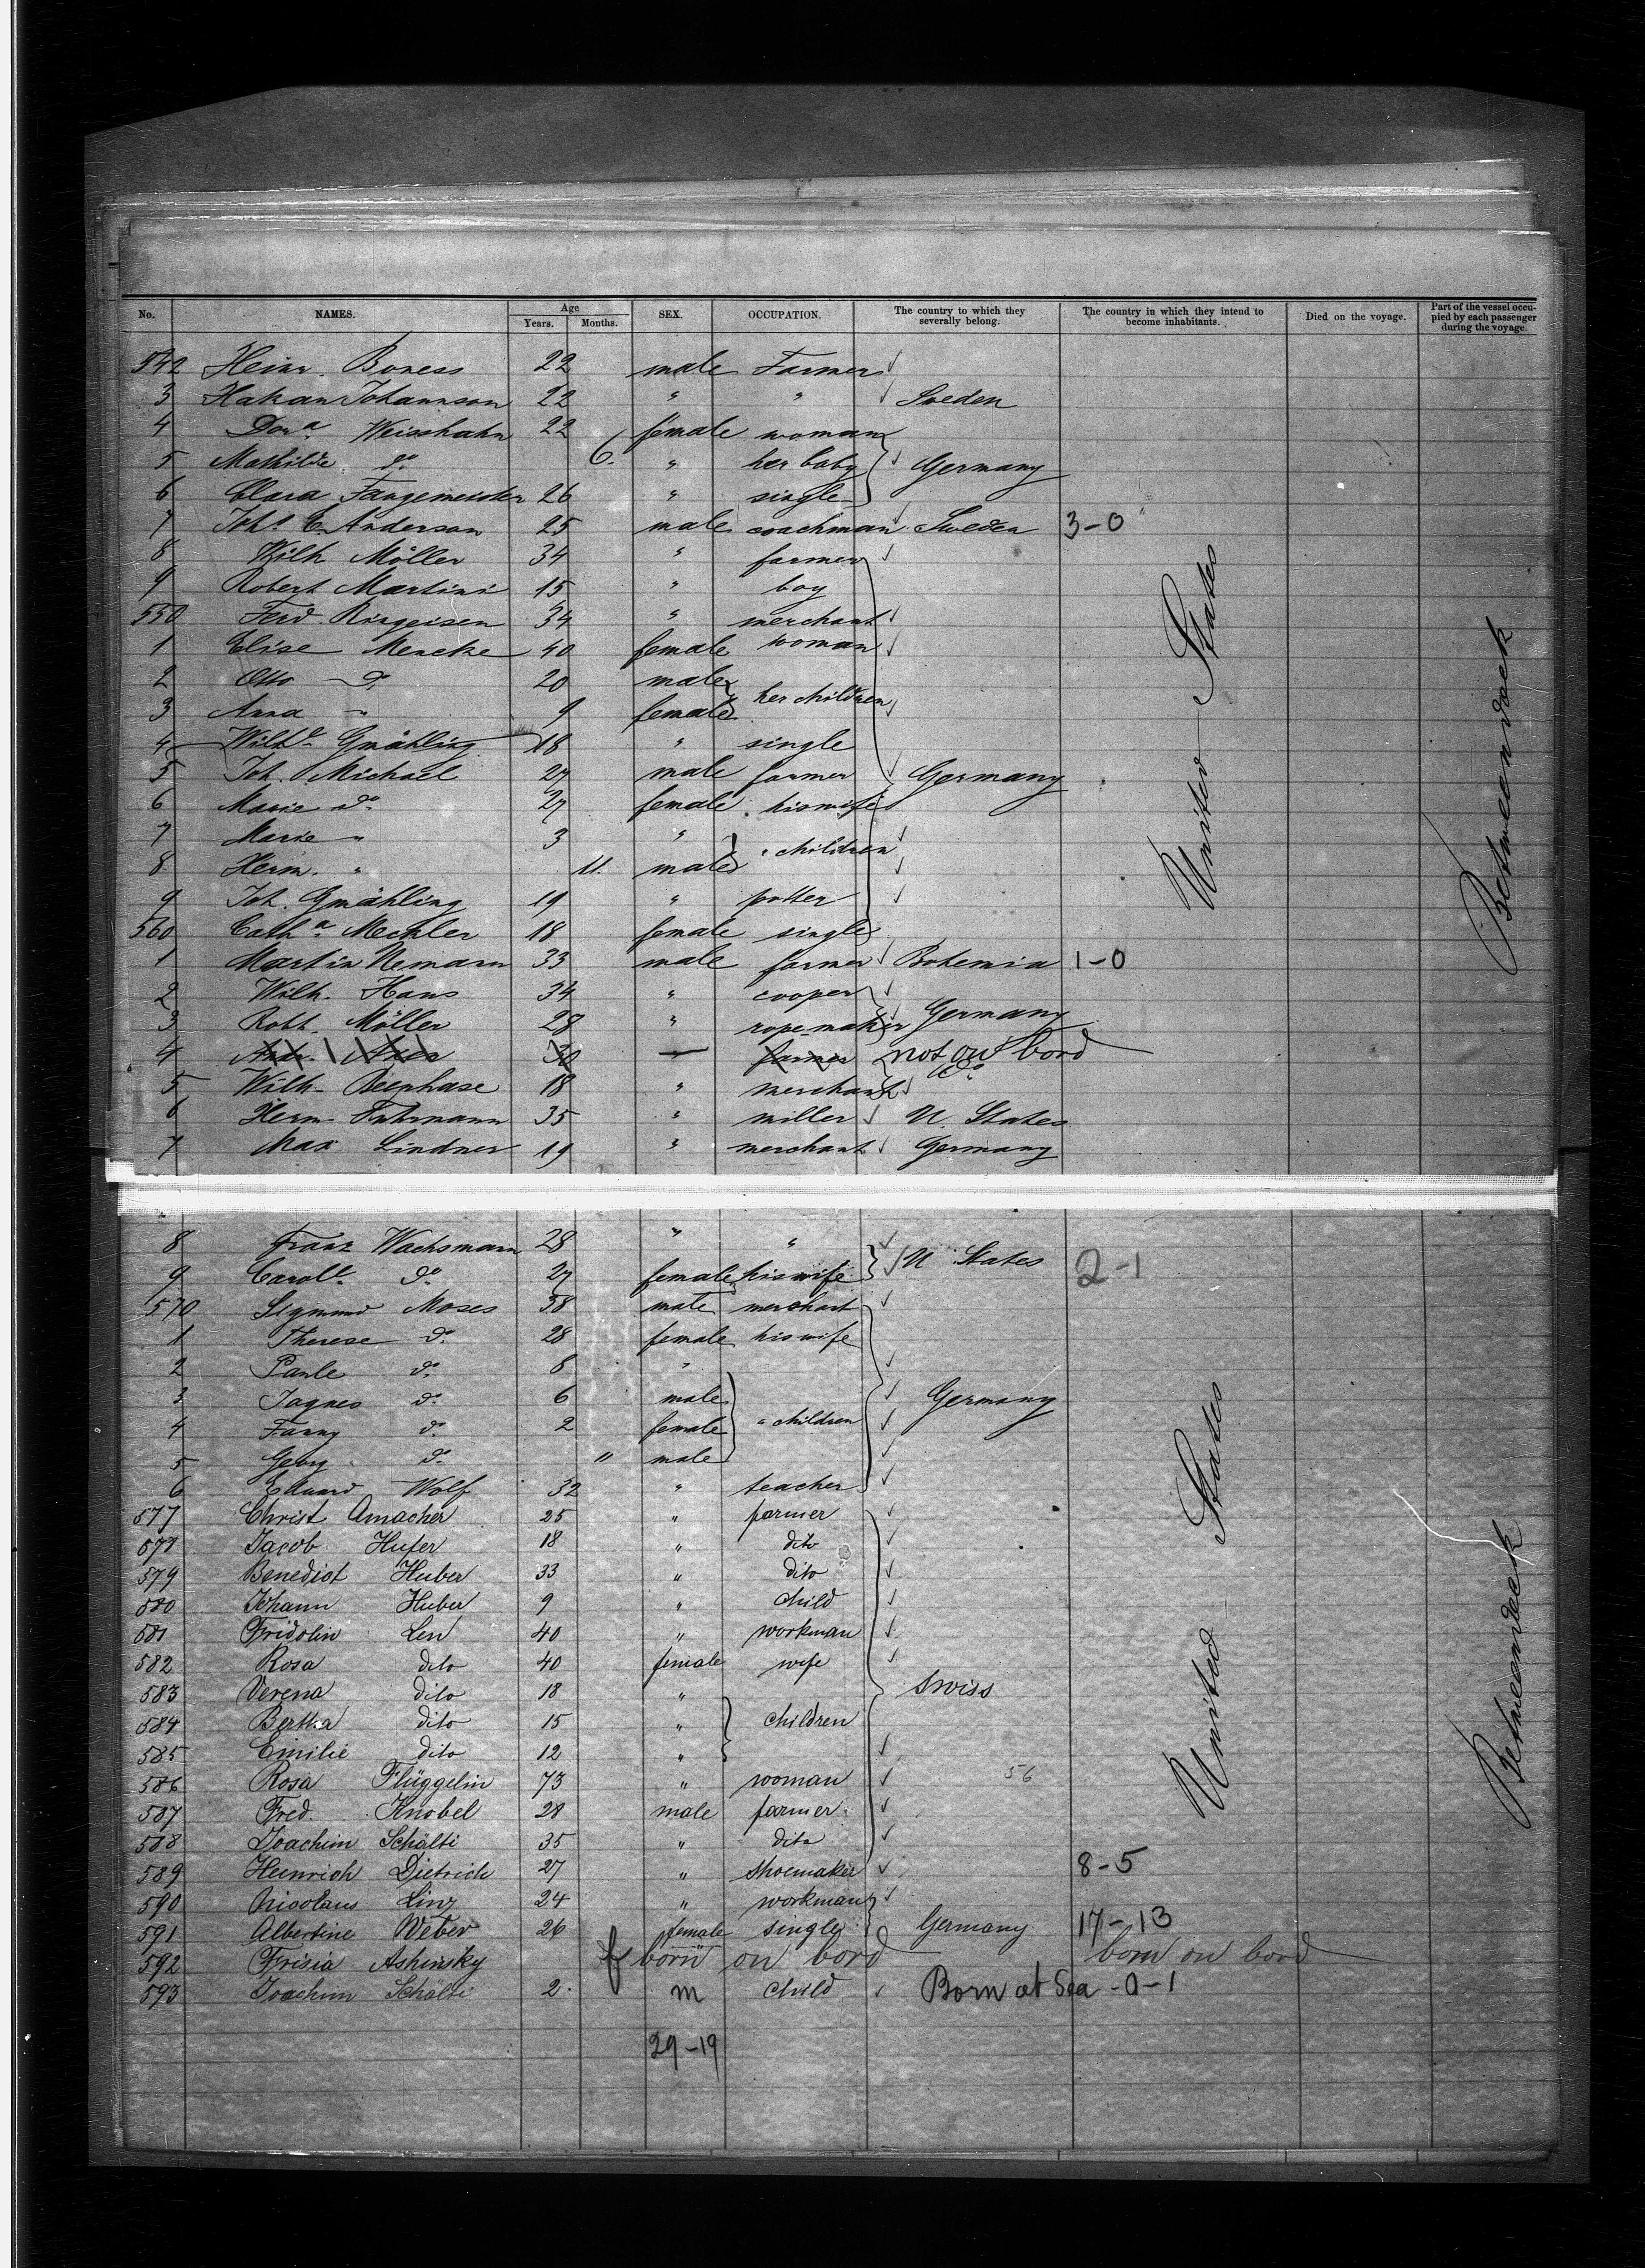 No. NAMES. Age Years. Months. SEX. OCCUPATION. The country to which they severally belong. The country in which they intend to become inhabitants. Died on the voyage. Part of the vessel occupied by each passenger during the voyage.
542 Heinr. Boness 22 male Farmer
3 Hakan Johannson 22 " " Sveden
4 Dora Weisshahn 22 female woman
5 Mathilde do 6. " her baby Germany
6 Clara 26 " single
7 Joh. E. Anderson 25 male coachman Sweden 3-0
8 Wilh Möller 34 " farmer
9 Robert Martini 15 " boy
550 Ferd 34 " merchant
1 Elise Mencke 40 female woman
2 Otto do 20 male her children
3 Anna " 9 female
4 Wilhe Gmähling 18 " single
5 Joh. Michael 27 male farmer Germany
6 Marie do 27 female his wife
7 Marie " 3 " " children
8 Herm. " 11. male
9 Joh. Gmähling 19 " potter
560 Catha Mechler 18 female single
1 Martin Nemann 33 male farmer Bohemia 1-0
2 Wilh. Hans 34 " cooper
3 Robt. Möller 28 " ropemaker Germany
4 30 — farmer not on bord
5 Wilh. 18 " merchant do
6 Herm. Fuhrmann 35 " miller U. States
7 Max Lindner 19 " merchant Germany
United States
Betweendeck
8 Franz Wachsmann 28 " "
9 Carole do 27 female his wife U States 2-1
570 Sigmund Moses 38 male merchant
1 Therese do 28 female his wife
2 Paule do 8 "
3 Jagnes do 6 male Germany
4 Fanny do 2 female " children
5 Georg do " male
6 Eduard Wolf 32 " teacher
577 Christ Amacher 25 " farmer
578 Jacob Hufer 18 " dito
579 Benedict Huber 33 " dito
580 Johann Huber 9 " child
581 Fridolin Len 40 " workman
582 Rosa dito 40 female wife
583 Verena dito 18 " Swiss
584 Bertha dito 15 " children
585 Emilie dito 12 "
586 Rosa Flüggelin 73 " woman 56
587 Fred. Knobel 28 male farmer
588 Joachim Schälti 35 " dito
589 Heinrich Dietrich 27 " shoemaker 8-5
590 Nicolaus Linz 24 " workman
591 Albertine Weber 26 female single Germany 17-13
592 Frisia Ashinsky f born on bord born on bord
593 Joachim Schälti 2. m child Born at Sea -0-1
29-19
United States
Betweendeck